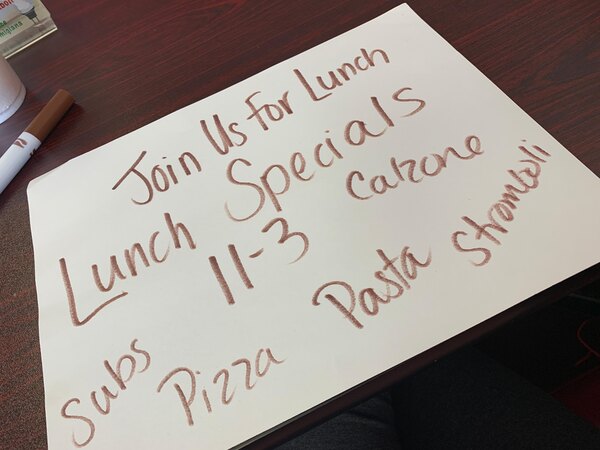 Join Us For Lunch
Lunch Specials
11-3
Calzone
Subs
Pizza
Pasta
Stromboli